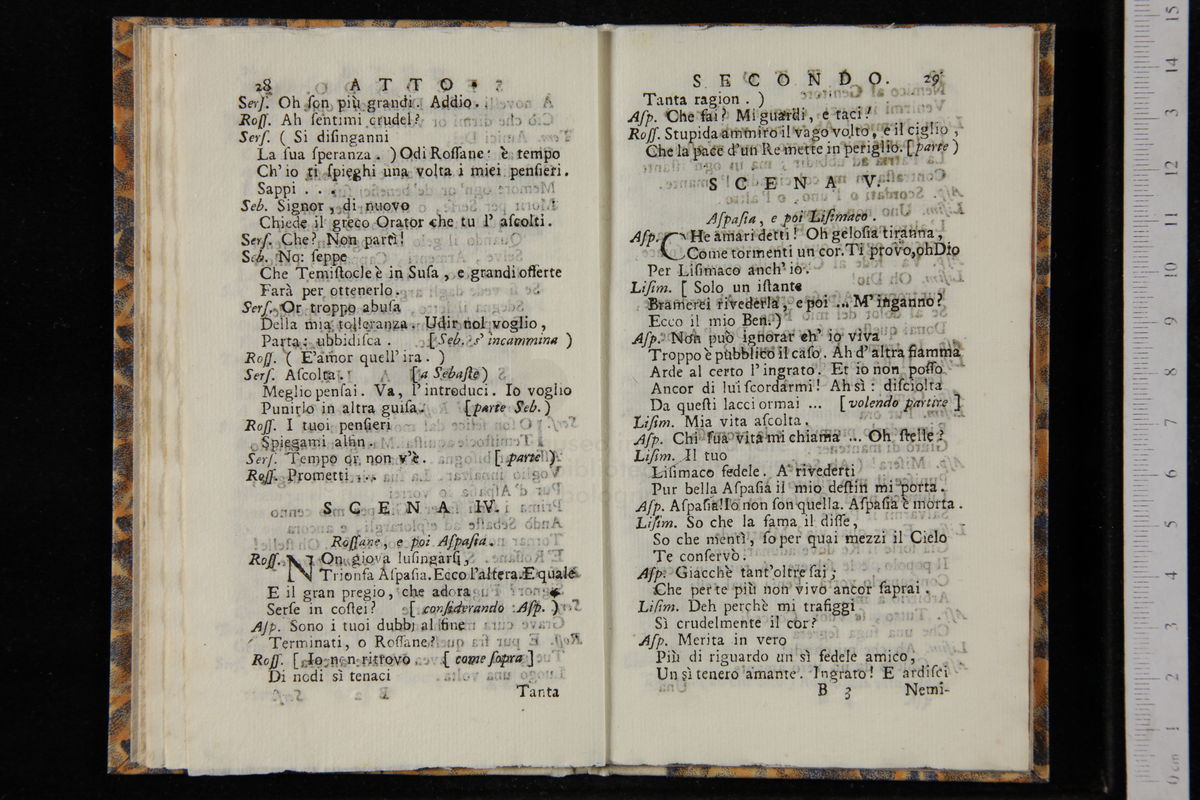 28 ATTO
Serſ. Oh ſon più grandi. Addio.
Roſſ. Ah ſentimi crudel?
Serſ. ( Si diſinganni
La ſua ſperanza . ) Odi Roſſane: è tempo
Ch' io ti ſpieghi una volta i miei penſieri.
Sappi . . .
Seb. Signor, di nuovo
Chiede il greco Orator che tu l' aſcolti.
Serſ. Che? Non partì!
Seb. No: ſeppe
Che Temiſtocle è in Suſa , e grandi offerte
Farà per ottenerlo.
Serſ. Or troppo abuſa
Della mia tolleranza. Udir nol voglio,
Parta: ubbidiſca . [ Seb. s' incammina )
Roſſ. ( E' amor quell' ira. )
Serſ. Aſcolta. [ a Sebaſte )
Meglio penſai. Va, l' introduci. Io voglio
Punirlo in altra guiſa. [ parte Seb. )
Roſſ. I tuoi penſieri
Spiegami alfin.
Serſ. Tempo or non v'è. [ parte )
Roſſ. Prometti ....
SCENA IV.
Roſſane, e poi Aſpaſia.
Roſſ. NOn giova luſingarſi,
Trionfa Aſpaſia. Ecco l'altera. E quale
E il gran pregio, che adora
Serſe in coſtei? [ conſiderando Aſp. )
Aſp. Sono i tuoi dubbj al fine
Terminati, o Roſſane?
Roſſ. [ Io non ritrovo [ come ſopra ]
Di nodi sì tenaci
Tanta
SECONDO. 29
Tanta ragion . )
Aſp. Che fai? Mi guardi, e taci!
Roſſ. Stupida ammiro il vago volto, e il ciglio,
Che la pace d'un Re mette in periglio. [ parte )
SCENA V.
Aſpaſia, e poi Liſimaco.
Aſp. CHe amari detti! Oh geloſia tiranna,
Come tormenti un cor. Ti provo, oh Dio
Per Liſimaco anch' io.
Liſim. [ Solo un iſtante
Bramerei rivederla, e poi ... M' inganno?
Ecco il mio Ben. )
Aſp. Non può ignorar ch' io viva
Troppo è pubblico il caſo. Ah d' altra fiamma
Arde al certo l' ingrato. Et io non poſſo
Ancor di lui ſcordarmi! Ah sì: diſciolta
Da queſti lacci ormai ... [ volendo partire ]
Liſim. Mia vita aſcolta.
Aſp. Chi ſua vita mi chiama ... Oh ſtelle?
Liſim. Il tuo
Liſimaco fedele. A rivederti
Pur bella Aſpaſia il mio deſtin mi porta.
Aſp. Aſpaſia! Io non ſon quella. Aſpaſia è morta.
Liſim. So che la fama il diſſe,
So che mentì, ſo per quai mezzi il Cielo
Te conſervò.
Aſp. Giacchè tant'oltre ſai;
Che per te più non vivo ancor ſaprai.
Liſim. Deh perchè mi trafiggi
Sì crudelmente il cor?
Aſp. Merita in vero
Più di riguardo un sì fedele amico,
Un sì tenero amante. Ingrato! E ardiſci
B 3 Nemi-